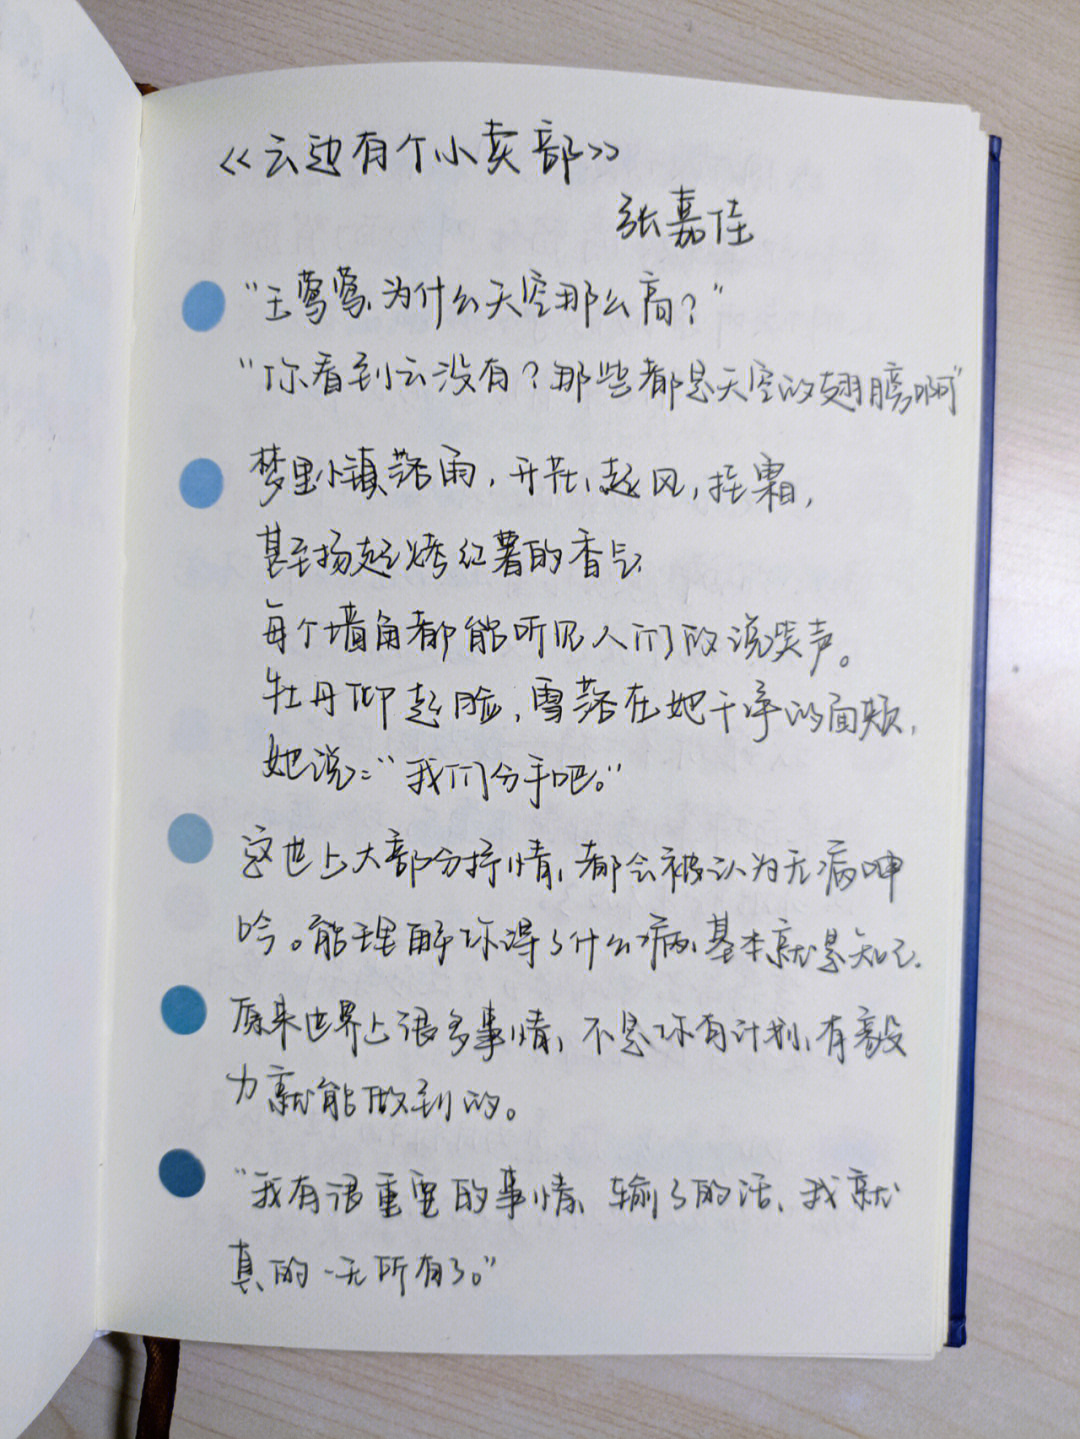 《云边有个小卖部》
张嘉佳
“王莺莺,为什么天空那么高?”
“你看到云没有?那些都是天空的翅膀啊”
梦里小镇落雨,开花,起风,挂霜,
甚至扬起烤红薯的香气,
每个墙角都能听见人们的说笑声。
牡丹仰起脸,雪落在她干净的面颊,
她说:“我们分手吧。”
这世上大部分抒情,都会被认为无病呻
吟。能理解你得了什么病,基本就是知己.
原来世界上很多事情,不是你有计划,有毅
力就能做到的。
“我有很重要的事情,输了的话,我就
真的一无所有了。”